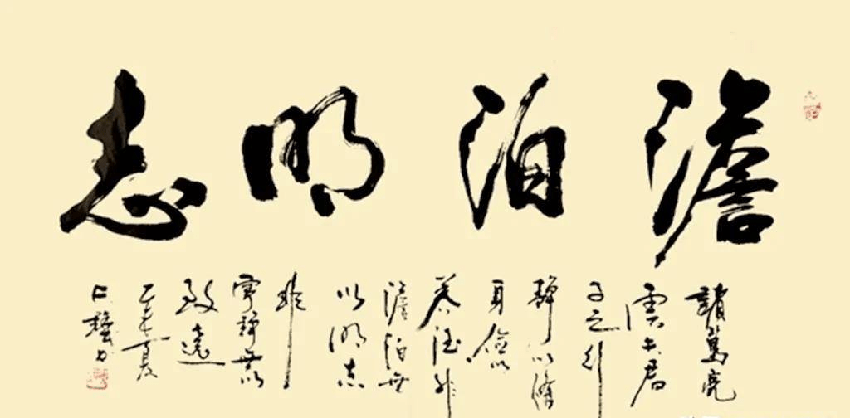 澹泊明志
諸葛亮
雲夫君
子之行
靜以修
身儉以
養德非
澹泊無
以明志
非
寧靜無以
致遠
夏